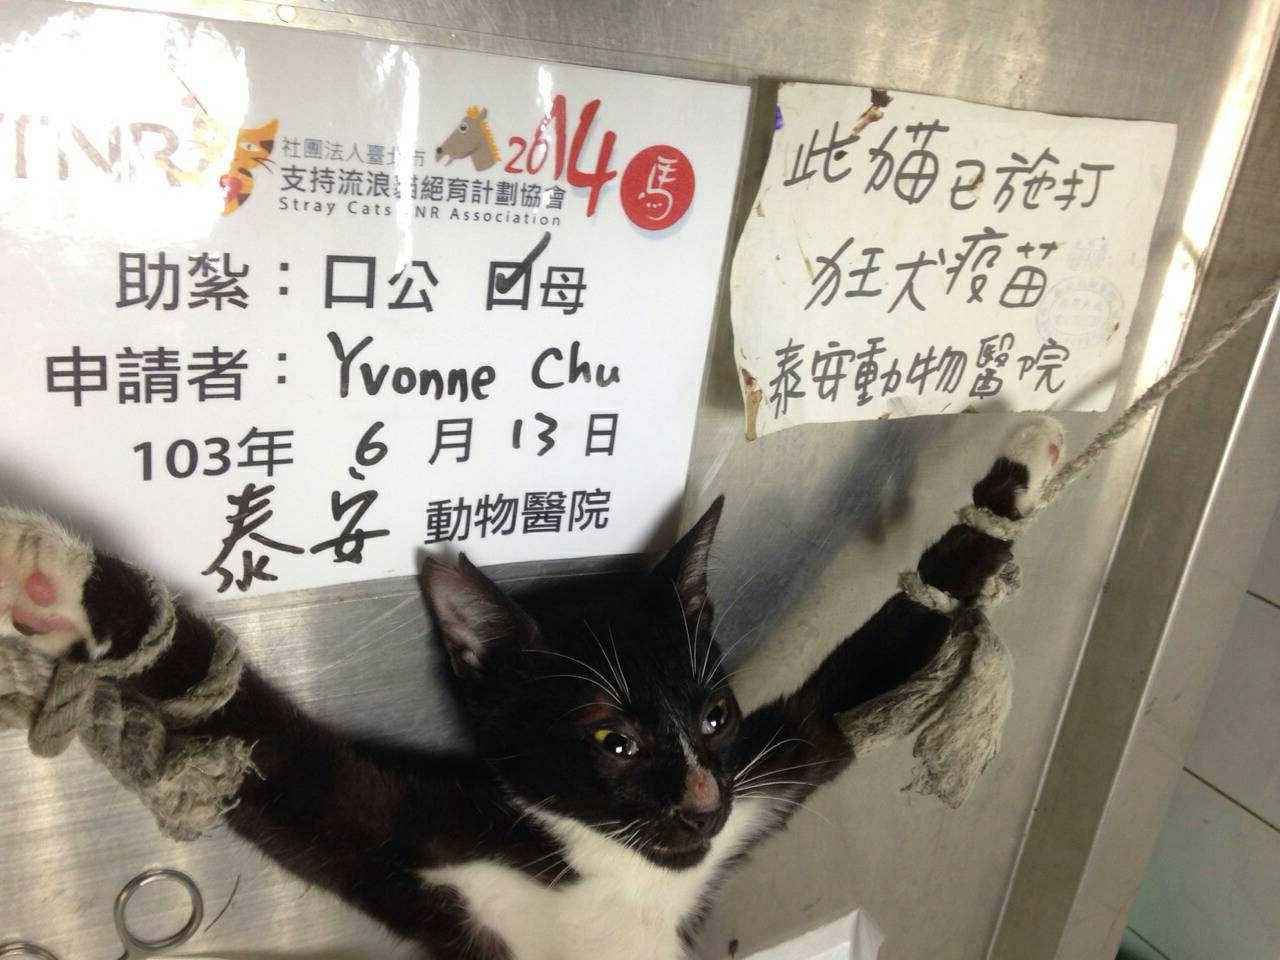 TNR
社團法人臺北市
支持流浪貓絕育計劃協會
Stray Cats TNR Association
2014
馬
助紮：口公 口母
申請者：Yvonne Chu
103年 6 月 13 日
泰安 動物醫院
此猫已施打
狂犬疫苗
泰安動物醫院